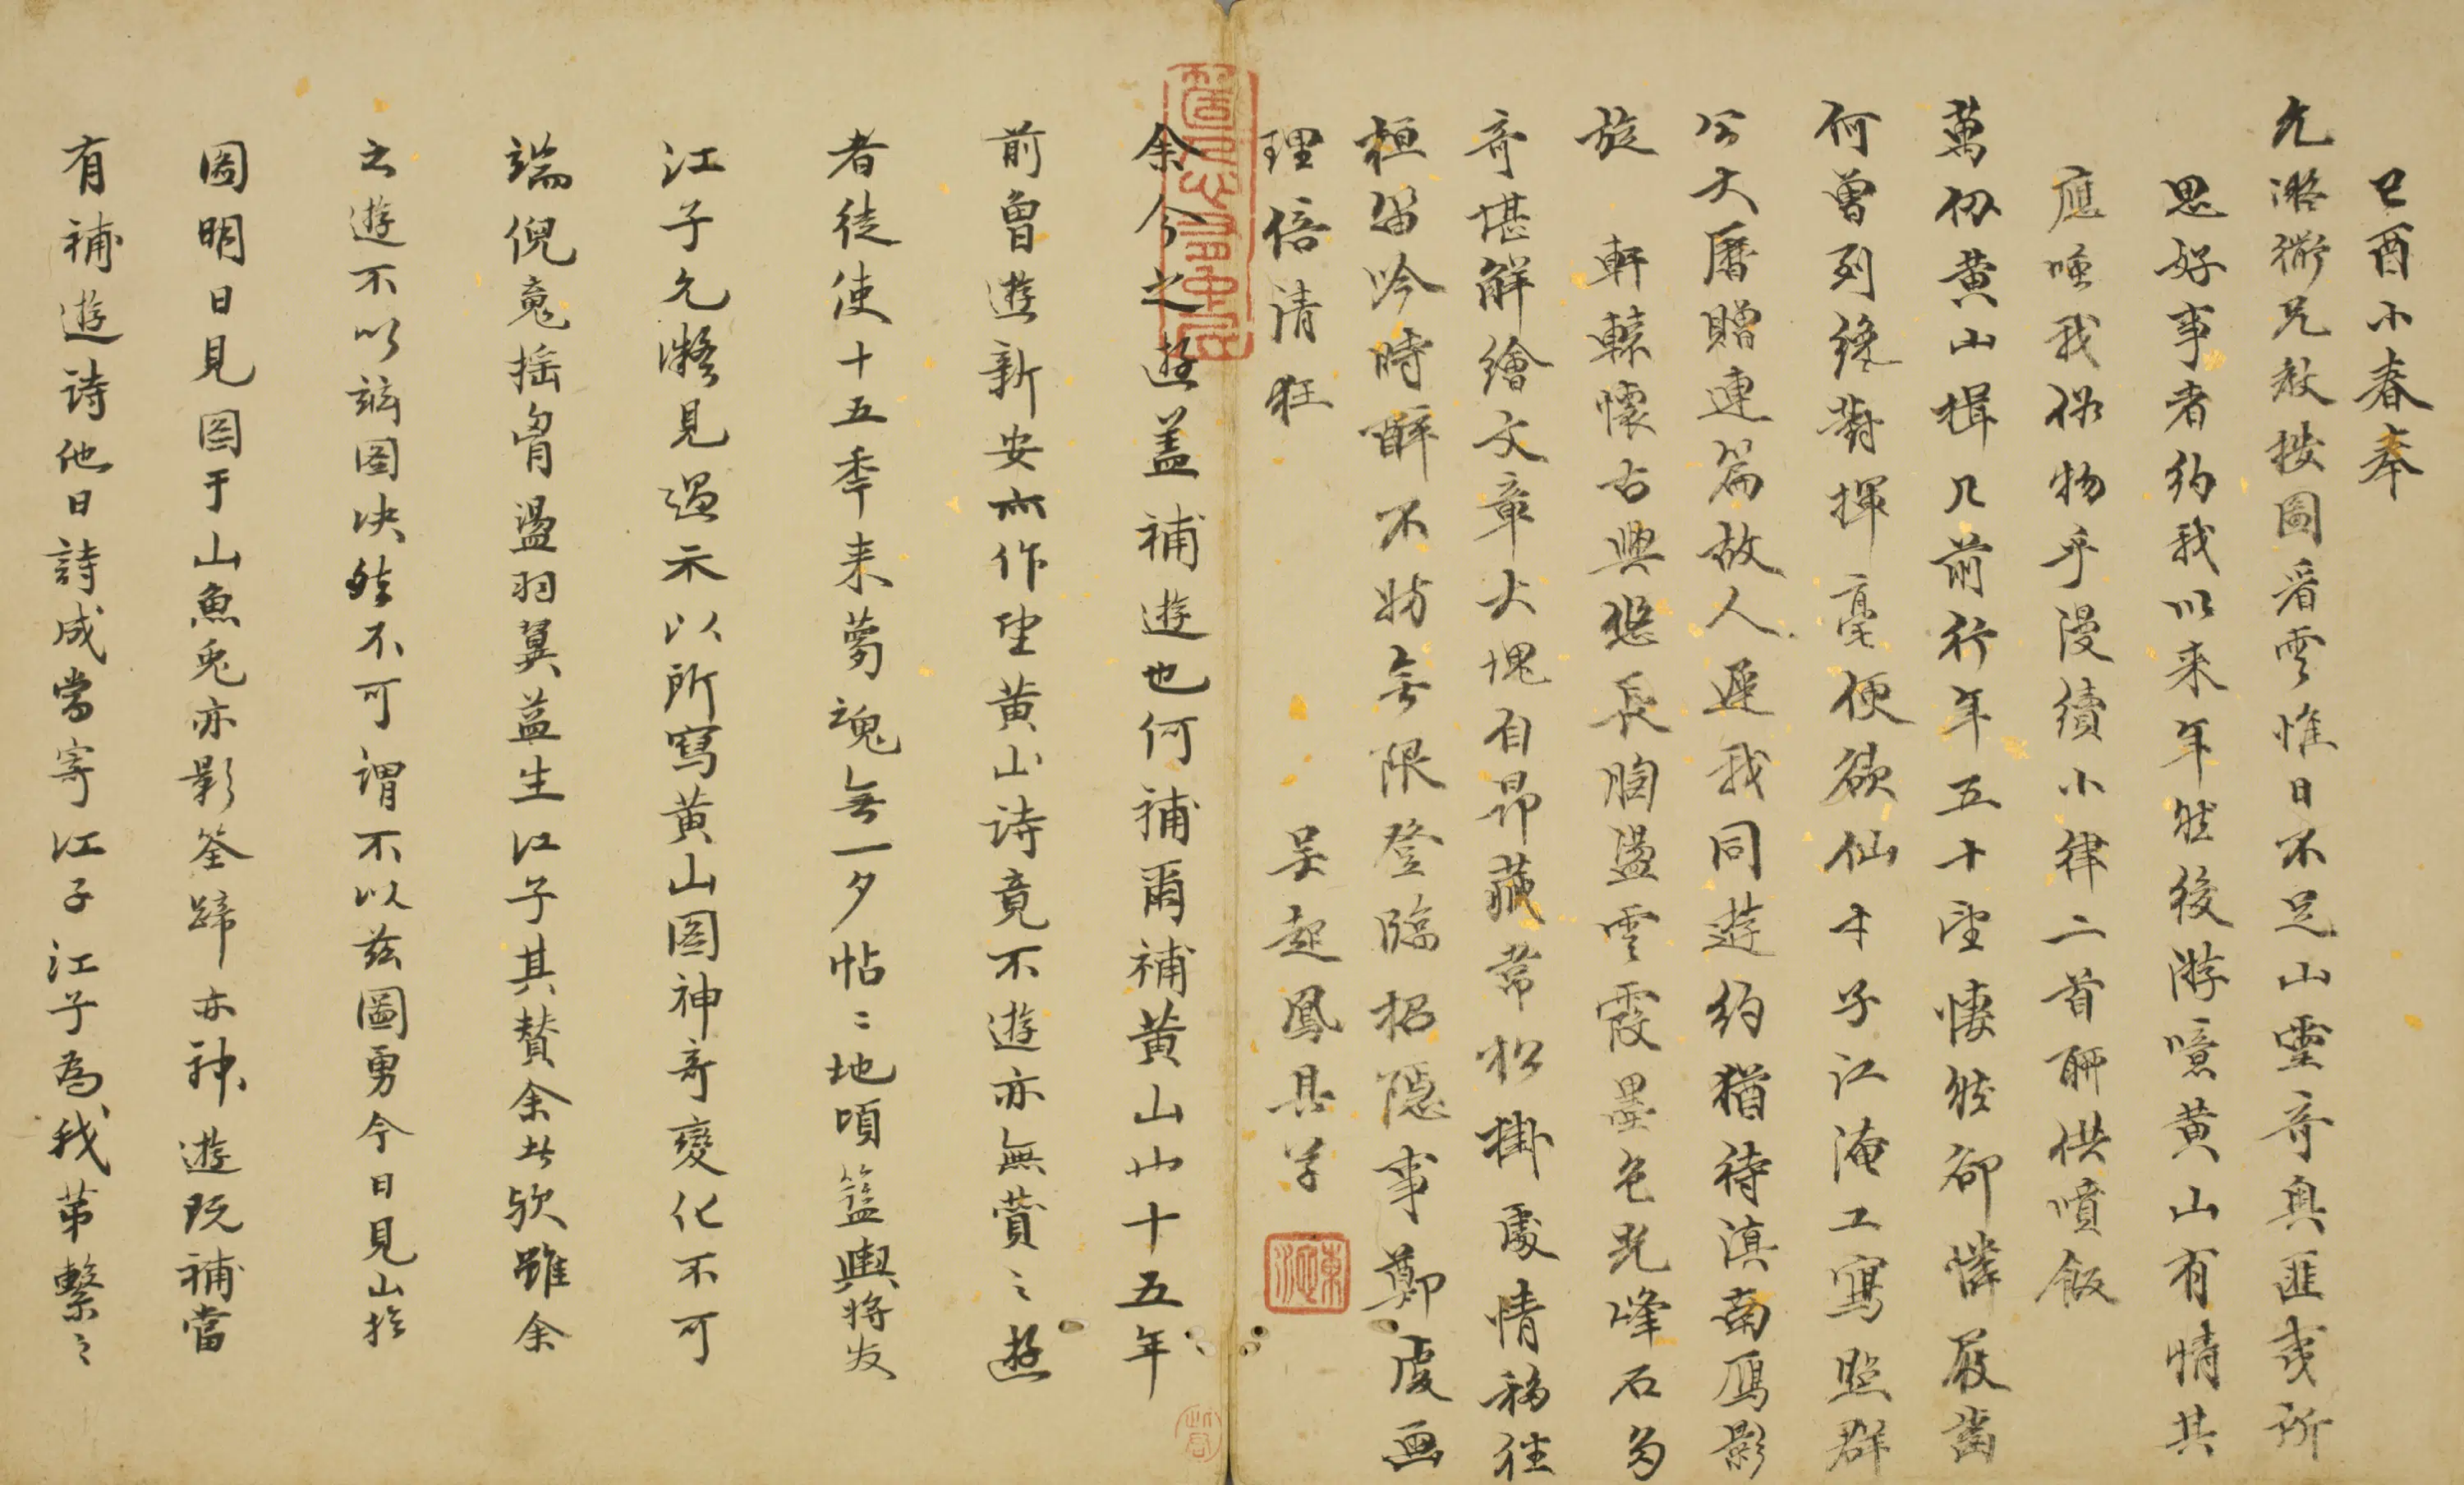 己酉小春奉
允凝衡兄教披圖看雲惟日不足山靈奇與匪夷所
思好事者約我以来年然後游噫黄山有情共
應唾我俗物乎漫續小律二首聊供噴飯
萬仞黄山揖几前行年五十望悽然卻憐屐齒
何曾列纔對揮毫便欲仙才子江淹工寫照群
公大曆贈連篇故人遲我同遊約猶待滇南鴈影
旋 軒轅懷古興悠長胸盪雲霞墨色光峰石多
奇堪解繪文章大塊自昂藏常松掛處情移往
桓留吟時醉不妨無限登臨招隱事鄭虔画
理倍清狂 吴起鳳具草
余今之遊盖補遊也何補爾補黄山廿十五年
前曾遊新安亦作望黄山诗竟不遊亦無蕢〻遊
者徒使十五季来夢魂無一夕帖〻地頃籃輿将发
江子允凝見過示以所寫黄山图神奇變化不可
端倪竟摇胷盪羽翼益生江子其賛余此欤雖余
之遊不以兹图决然不可谓不以兹圖勇今日見山於
图明日見图于山魚兎亦影筌蹄亦神遊既補當
有補遊诗他日詩成當寄江子江子為我苐繫〻